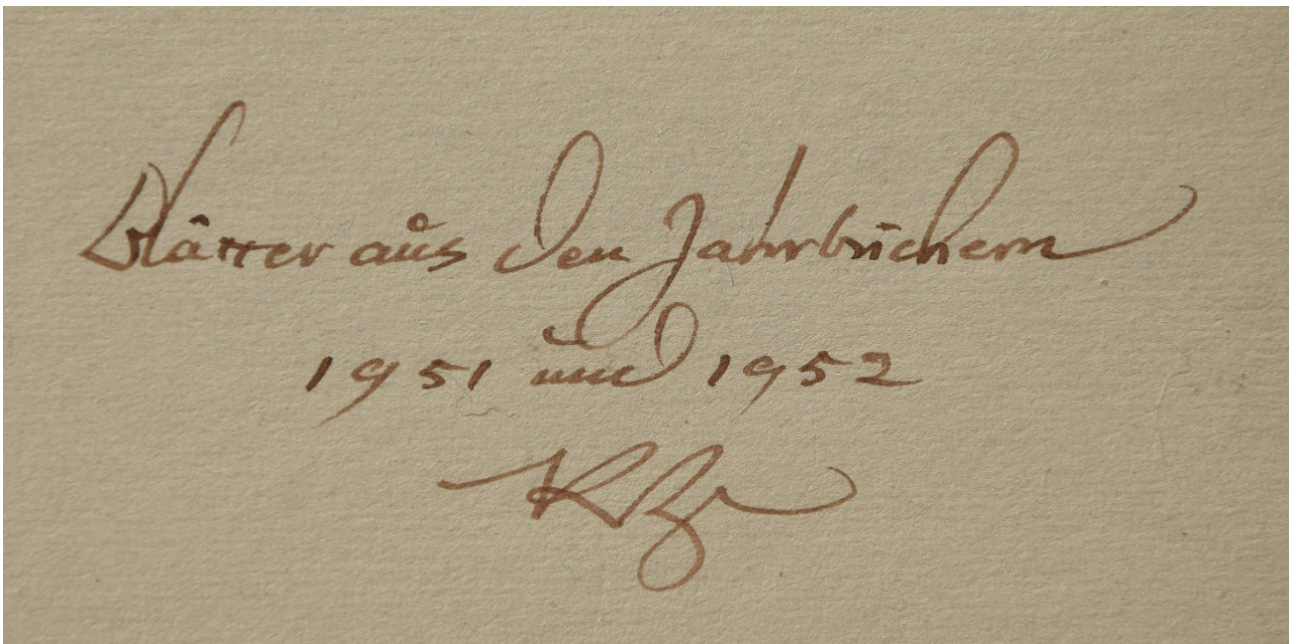 Blätter aus den Jahrbüchern
1951 und 1952